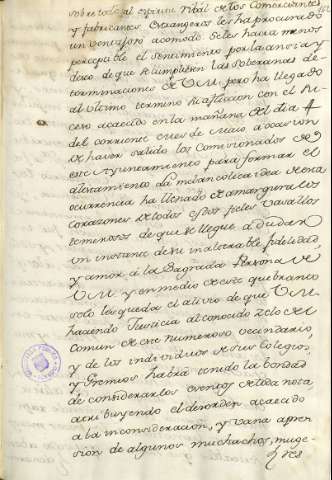 sobre todo al espiritu vital de los Comerciantes
y fabricantes Extrangeros les ha procurado
un ventajoso acomodo Se les hacia menos
perceptible el Sentimiento por la ansia y
deseo de que se cumpliesen las Soberanas de-
terminaciones de V.M. pero ha llegado
al ultimo termino su afliccion con el Su-
ceso acaecido en la mañana del dia 4
del corriente mes de Maio a ocasion
de haver salido los Comisionados de
este Ayuntamiento para formar el
alistamiento La melancolica idea de esta
ocurrencia ha llenado de amargura los
corazones de todos estos fieles vasallos
temerosos de que se llegue a dudar
un instante de su inalterable fidelidad
y amor á la Sagrada Persona de
V.M. y en medio de este quebranto
solo les queda el alivio de que V.M.
haciendo Justicia al conocido zelo del
Comun de este numeroso vecindario,
y de los individuos de sus Colegios,
y Gremios habrá tenido la bondad
de considerarlos esentos de toda nota
atribuyendo el desorden acaecido
a la inconsideracion, y vana apren-
sion de algunos muchachos, muge-
res